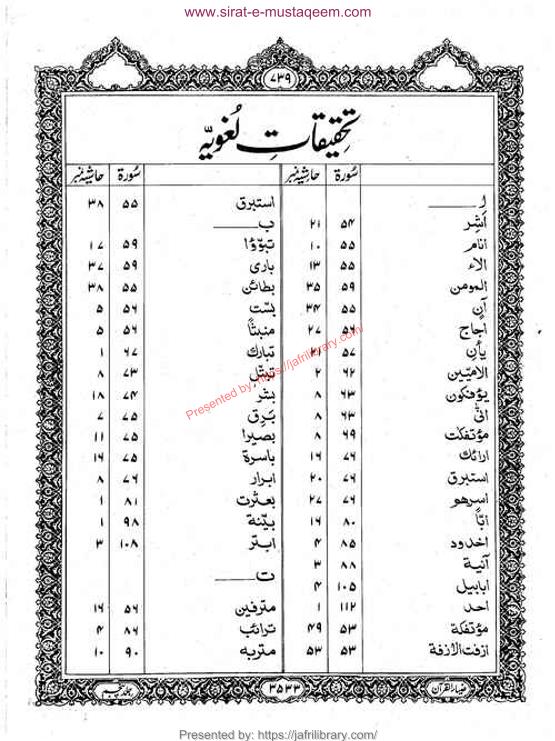 www.sirat-e-mustaqeem.com
۷۳۹
تحقیقاتِ لُغویہ
سُورۃ حاشیہ نمبر
ا
اَشِر ۵۴ ۲۱
انام ۵۵ ۱۰
الاء ۵۵ ۱۳
المومن ۵۹ ۳۵
آن ۵۵ ۳۴
اُجاج ۵۶ ۲۷
یأن ۵۷
الامیّین ۶۲ ۲
یؤفکون ۶۳ ۸
انّی ۶۳ ۸
مؤتفکت ۶۹ ۸
ارائك ۷۶ ۱۶
استبرق ۷۶ ۲۰
اسرهو ۷۶ ۲۷
ابّاً ۸۰ ۱۶
اخدود ۸۵ ۴
آنیة ۸۸ ۳
ابابیل ۱۰۵ ۴
احد ۱۱۲ ۱
مؤتفکة ۵۳ ۴۹
ازفت الازفة ۵۳ ۵۳
سُورۃ حاشیہ نمبر
استبرق ۵۵ ۳۸
ب
تبوّؤا ۵۹ ۱۷
باری ۵۹ ۳۷
بطائن ۵۵ ۳۸
بسّت ۵۶ ۵
منبثاً ۵۶ ۵
تبارك ۶۷ ۱
تبتّل ۷۳ ۸
بسر ۷۴ ۱۸
بَرِق ۷۵ ۷
بصیرا ۷۵ ۱۱
باسرة ۷۵ ۱۶
ابرار ۷۶ ۸
بعثرت ۸۱ ۱
بیّنة ۹۸ ۱
ابتر ۱۰۸ ۳
ت
مترفین ۵۶ ۱۶
ترائب ۸۶ ۴
متربه ۹۰ ۱۰
ضیاءالقرآن
۳۵۳۳
جلد پنجم
Presented by: https://jafrilibrary.com/
Presented by: https://jafrilibrary.com/